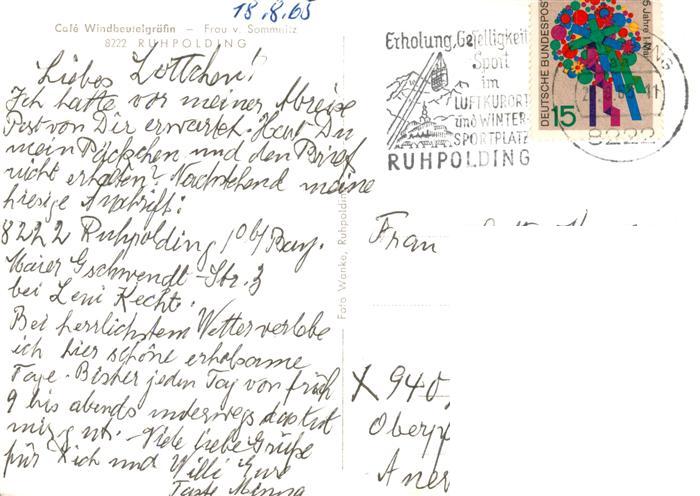 18.8.65
Café Windbeutelgräfin – Frau v. Sommnitz
8222 RUHPOLDING
Liebes Lottchen!
Ich hatte vor meiner Abreise
Post von Dir erwartet. Hast Du
mein Päckchen und den Brief
nicht erhalten? Nachstehend meine
hiesige Anschrift:
8222 Ruhpolding /Obb/Bay.
Maier Gschwendt-Str. 3
bei Leni Kecht.
Bei herrlichstem Wetter verlebe
ich hier schöne erholsame
Tage. Bisher jeden Tag von früh
9 bis abends unterwegs das tut
mir gut. Viele liebe Grüße
für Dich und Willi Eure
Tante Minna
Foto Wanke, Ruhpolding
Erholung, Geselligkeit
Sport
im
LUFTKURORT
und WINTER-
SPORTPLATZ
RUHPOLDING
DEUTSCHE BUNDESPOST
15
8222
Frau
X 940